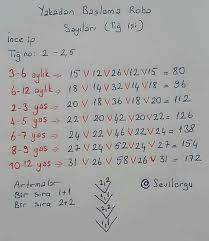 Yakadan Başlama Roba
Sayıları (Tığ işi)
İnce ip
Tığ no: 2 - 2,5
3-6 aylık → 15 V 12 V 26 V 12 V 15 = 80
6-12 aylık → 18 V 14 V 32 V 14 V 18 = 96
2-3 yaş → 20 V 18 V 36 V 18 V 20 = 112
4-5 yaş → 22 V 20 V 42 V 20 V 22 = 126
6-7 yaş → 24 V 22 V 46 V 22 V 24 = 138
8-9 yaş → 27 V 24 V 52 V 24 V 27 = 154
10-12 yaş → 31 V 26 V 58 V 26 V 31 = 172
Artırmalar
Bir sıra 1+1
Bir sıra 2+2
@Sevilorgu